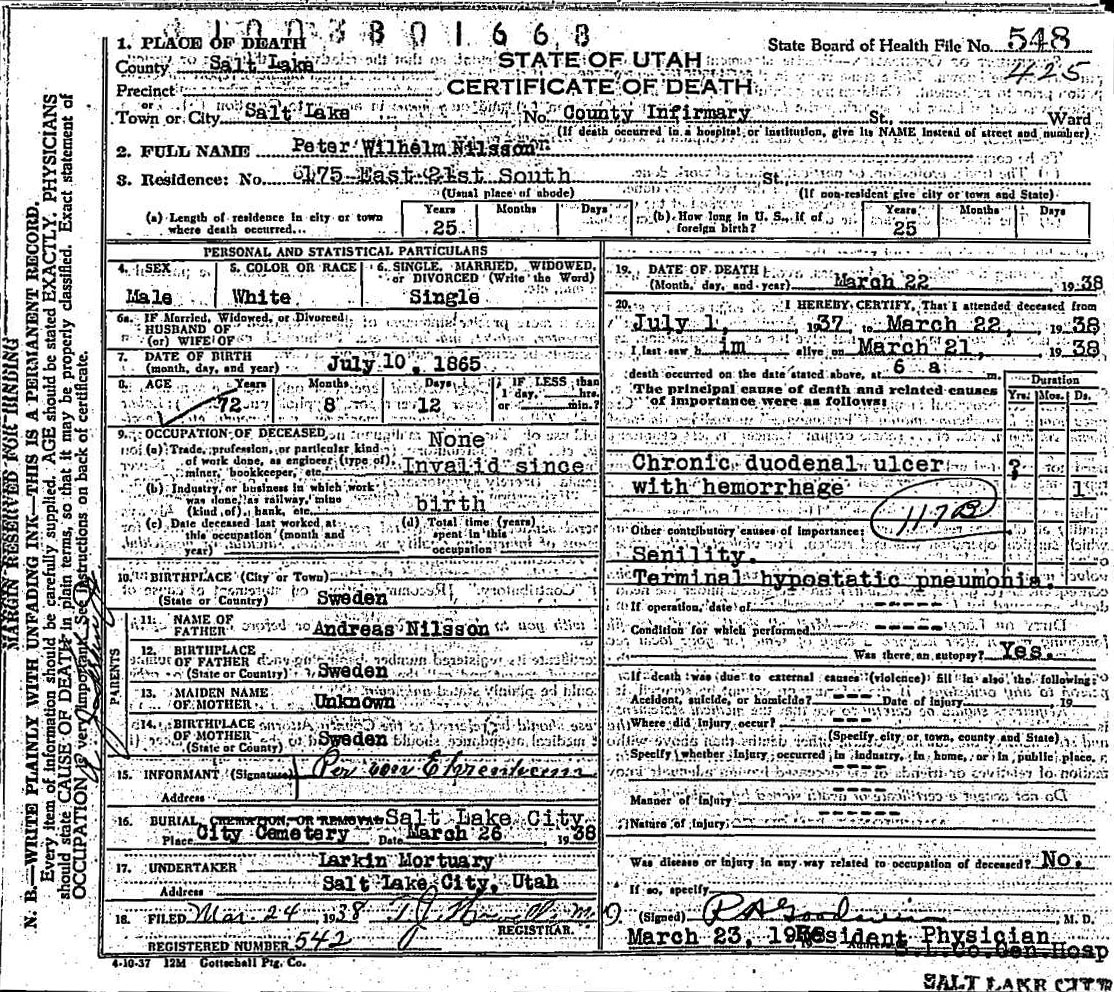 1003801668
1. PLACE OF DEATH
State Board of Health File No. 548
County Salt Lake
STATE OF UTAH
425
Precinct
CERTIFICATE OF DEATH
or
Town or City Salt Lake No. County Infirmary St., Ward
(If death occurred in a hospital or institution, give its NAME instead of street and number)
2. FULL NAME Peter Wilhelm Nilsson
3. Residence: No. 6175 East 21st South St.
(Usual place of abode) (If non-resident give city or town and State)
(a) Length of residence in city or town where death occurred... Years 25 Months Days
(b) How long in U. S., if of foreign birth? Years 25 Months Days
PERSONAL AND STATISTICAL PARTICULARS
4. SEX Male
5. COLOR OR RACE White
6. SINGLE, MARRIED, WIDOWED, or DIVORCED (Write the Word) Single
6a. IF Married, Widowed, or Divorced
HUSBAND OF
(or) WIFE OF
7. DATE OF BIRTH
(month, day, and year) July 10, 1865
8. AGE Years 72 Months 8 Days 12 IF LESS than 1 day, hrs. or min.?
9. OCCUPATION OF DECEASED None
(a) Trade, profession, or particular kind
of work done, as engineer (type of)
miner, bookkeeper, etc. Invalid since
(b) Industry, or business in which work
was done, as railway, mine
(kind of), bank, etc. birth
(c) Date deceased last worked at
this occupation (month and
year)
(d) Total time (years)
spent in this
occupation
10. BIRTHPLACE (City or Town)
(State or Country) Sweden
PARENTS
11. NAME OF
FATHER Andreas Nilsson
12. BIRTHPLACE
OF FATHER
(State or County) Sweden
13. MAIDEN NAME
OF MOTHER Unknown
14. BIRTHPLACE
OF MOTHER
(State or County) Sweden
15. INFORMANT (Signature) Per von Ehrenheim
Address
16. BURIAL, CREMATION, OR REMOVAL Salt Lake City
Place City Cemetery Date March 26 1938
17. UNDERTAKER Larkin Mortuary
Address Salt Lake City, Utah
18. FILED Mar. 24 1938 M.D.
REGISTRAR.
REGISTERED NUMBER 542
4-10-37 12M Gottschall Ptg. Co.
19. DATE OF DEATH
(Month, day, and year) March 22 1938
20. I HEREBY CERTIFY, That I attended deceased from
July 1, 1937 to March 22, 1938
I last saw him alive on March 21, 1938
death occurred on the date stated above, at 6 a m.
The principal cause of death and related causes
of importance were as follows:
Duration
Yrs. Mos. Ds.
Chronic duodenal ulcer ?
with hemorrhage 1
117B
Other contributory causes of importance:
Senility.
Terminal hypostatic pneumonia.
If operation, date of -----
Condition for which performed -----
Was there an autopsy? Yes.
If death was due to external causes (violence) fill in also the following:
Accident, suicide, or homicide? --- Date of injury 19
Where did injury occur? ---
(Specify city or town, county and State)
Specify whether injury occurred in industry, in home, or in public place.
-----
Manner of injury -----
Nature of injury
Was disease or injury in any way related to occupation of deceased? No.
If so, specify
(Signed) R A Goodwin M. D.
March 23, 1938 Resident Physician
S.L.Co.Gen.Hosp
SALT LAKE CITY
MARGIN RESERVED FOR BINDING
N. B.—WRITE PLAINLY WITH UNFADING INK—THIS IS A PERMANENT RECORD.
Every item of information should be carefully supplied. AGE should be stated EXACTLY. PHYSICIANS
should state CAUSE OF DEATH in plain terms, so that it may be properly classified. Exact statement of
OCCUPATION is very important. See instructions on back of certificate.